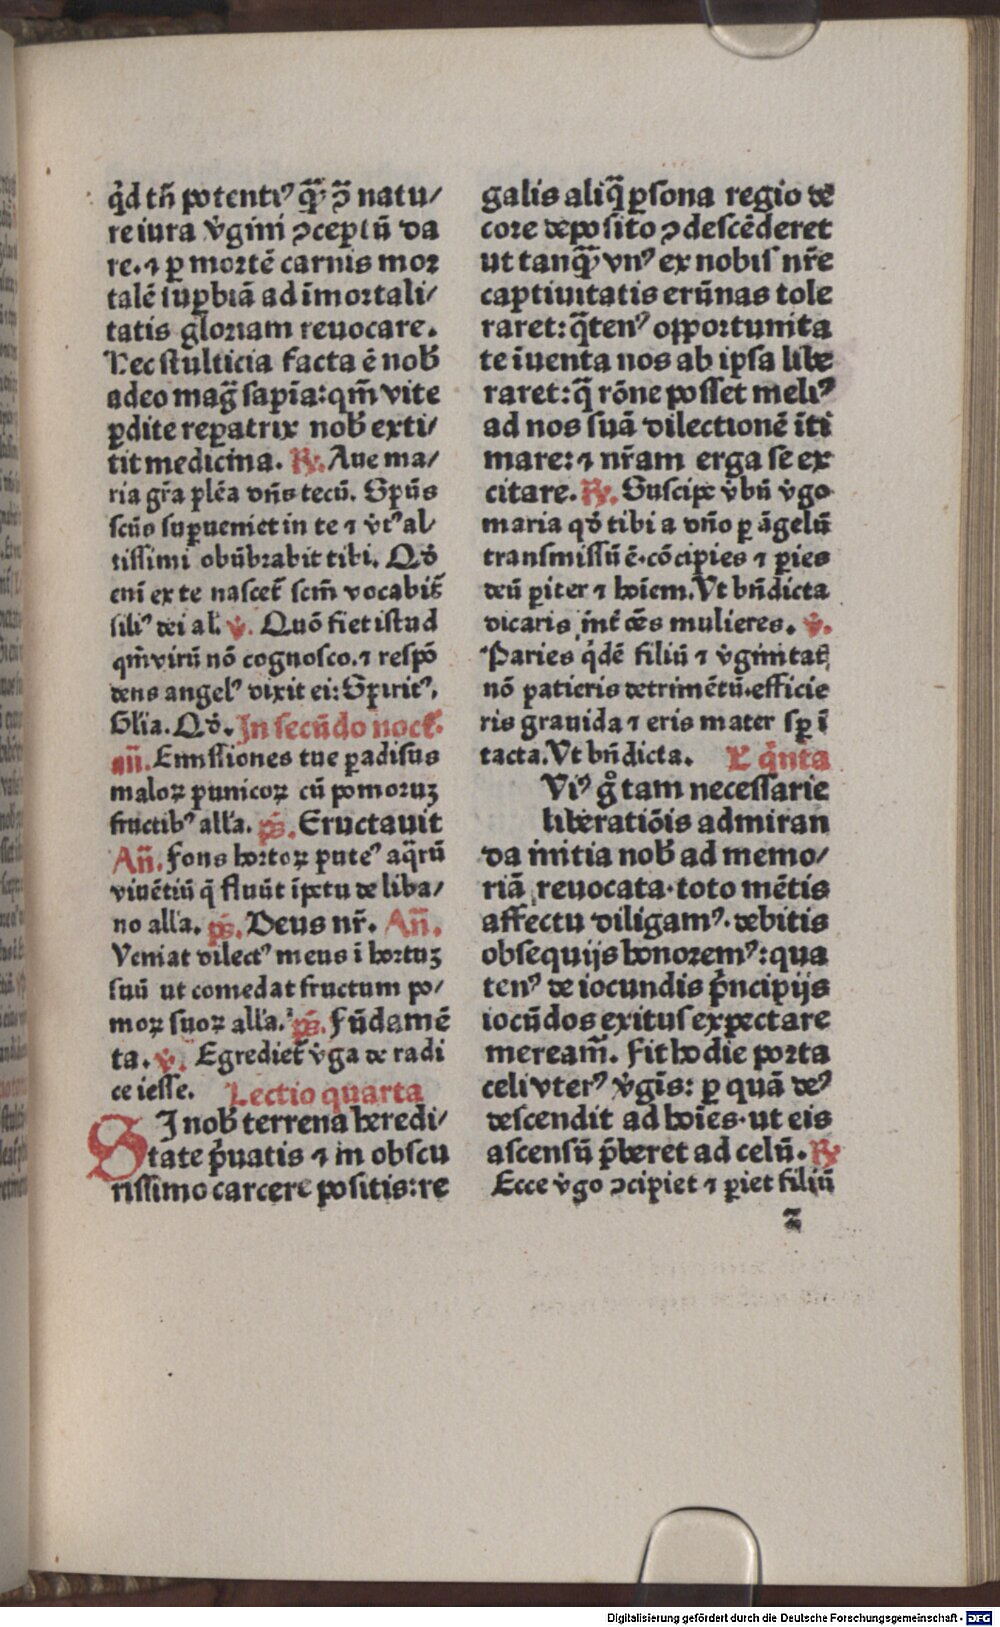 qd̾ tn̄ potentiꝰ qͣ̄ ꝯ̄ natu/
re iura v̾gini ꝯceptū da
re. ⁊ ꝑ mortē carnis mor
talē suꝑbiā ad īmortali/
tatis gloriam reuocare.
Nec stulticia facta ē nob̾
adeo mag̃ sapīa: qm̄ vite
ꝑdite reꝑatrix nob̾ exti/
tit medicina. ℟. Aue ma/
ria gr̄a plēa dn̄s tecū. Spūs
scūs suꝑueniet in te ⁊ v̾tꝰ al/
tissimi obūbrabit tibi. Qd̾
eni̅ ex te nascet̾ scm̄ vocabit̾
filiꝰ dei al̾. ℣. Quō fiet istud
qm̄ virū nō cognosco. ⁊ respō
dens angelꝰ dixit ei: Spiritꝰ.
Gl̄ia. Qd̾. In secūdo noct̾.
an̄. Emissiones tue ꝑadisus
maloꝝ punicoꝝ cū pomoruꝫ
fructibꝰ all̾a. ps̄. Eructauit
An̄. Fons hortoꝝ puteꝰ aq̄rū
viuētiū q̄ fluūt īpetu de liba/
no all̾a. ps̄. Deus nr̄. An̄.
Veniat dilectꝰ meus ī hortuꝫ
suū ut comedat fructum po/
moꝝ suoꝝ all̾a. ps̄. Fūdamē
ta. ℣. Egrediet̾ v̾ga de radi
ce iesse. Lectio quarta
SI nob̾ terrena heredi/
tate p̾uatis ⁊ in obscu
rissimo carcere positis: re
galis aliq̄ ꝑsona regio de
core deposito ꝯdescēderet
ut tanqͣ̄ vnꝰ ex nobis nr̄e
captiuitatis erūnas tole
raret: q̄tenꝰ opportunita
te īuenta nos ab ipsa libe
raret: q̄ rōne posset meliꝰ
ad nos suā dilectionē īti
mare: ⁊ nr̄am erga se ex
citare. ℟. Suscipe v̾bū v̾go
maria qd̾ tibi a dn̄o ꝑ āgelū
transmissū ē. cōcipies ⁊ ꝑies
deū ꝑiter ⁊ hoīem. Vt bn̄dicta
dicaris int̾ oēs mulieres. ℣.
Paries q̾dē filiū ⁊ v̾ginitat̾
nō patieris detrimētū. efficie
ris grauida ⁊ eris mater sꝑ ī
tacta. Vt bn̄dicta. L̾ q̾nta
Viꝰ gͦ tam necessarie
liberatiōis admiran
da initia nob̾ ad memo/
riā reuocata. toto mētis
affectu diligamꝰ. debitis
obsequijs honoremꝰ: qua
tenꝰ de iocundis p̾ncipijs
iocūdos exitus expectare
meream̾. Fit hodie porta
celi vterꝰ v̾gīs: ꝑ quā deꝰ
descendit ad hoīes. ut eis
ascensū p̄beret ad celū. ℟
Ecce v̾go ꝯcipiet ⁊ ꝑiet filiū
2
Digitalisierung gefördert durch die Deutsche Forschungsgemeinschaft - DFG